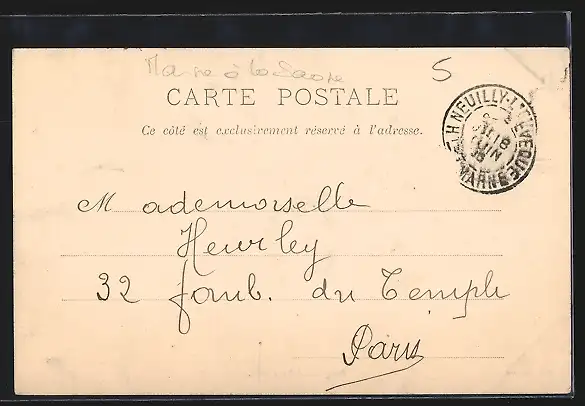 Marne à la Saone
5
CARTE POSTALE
Ce côté est exclusivement réservé à l'adresse.
NEUILLY-L'EVEQUE
18
JUIN
Hte MARNE
Mademoiselle
Heurley
32 faub. du Temple
Paris